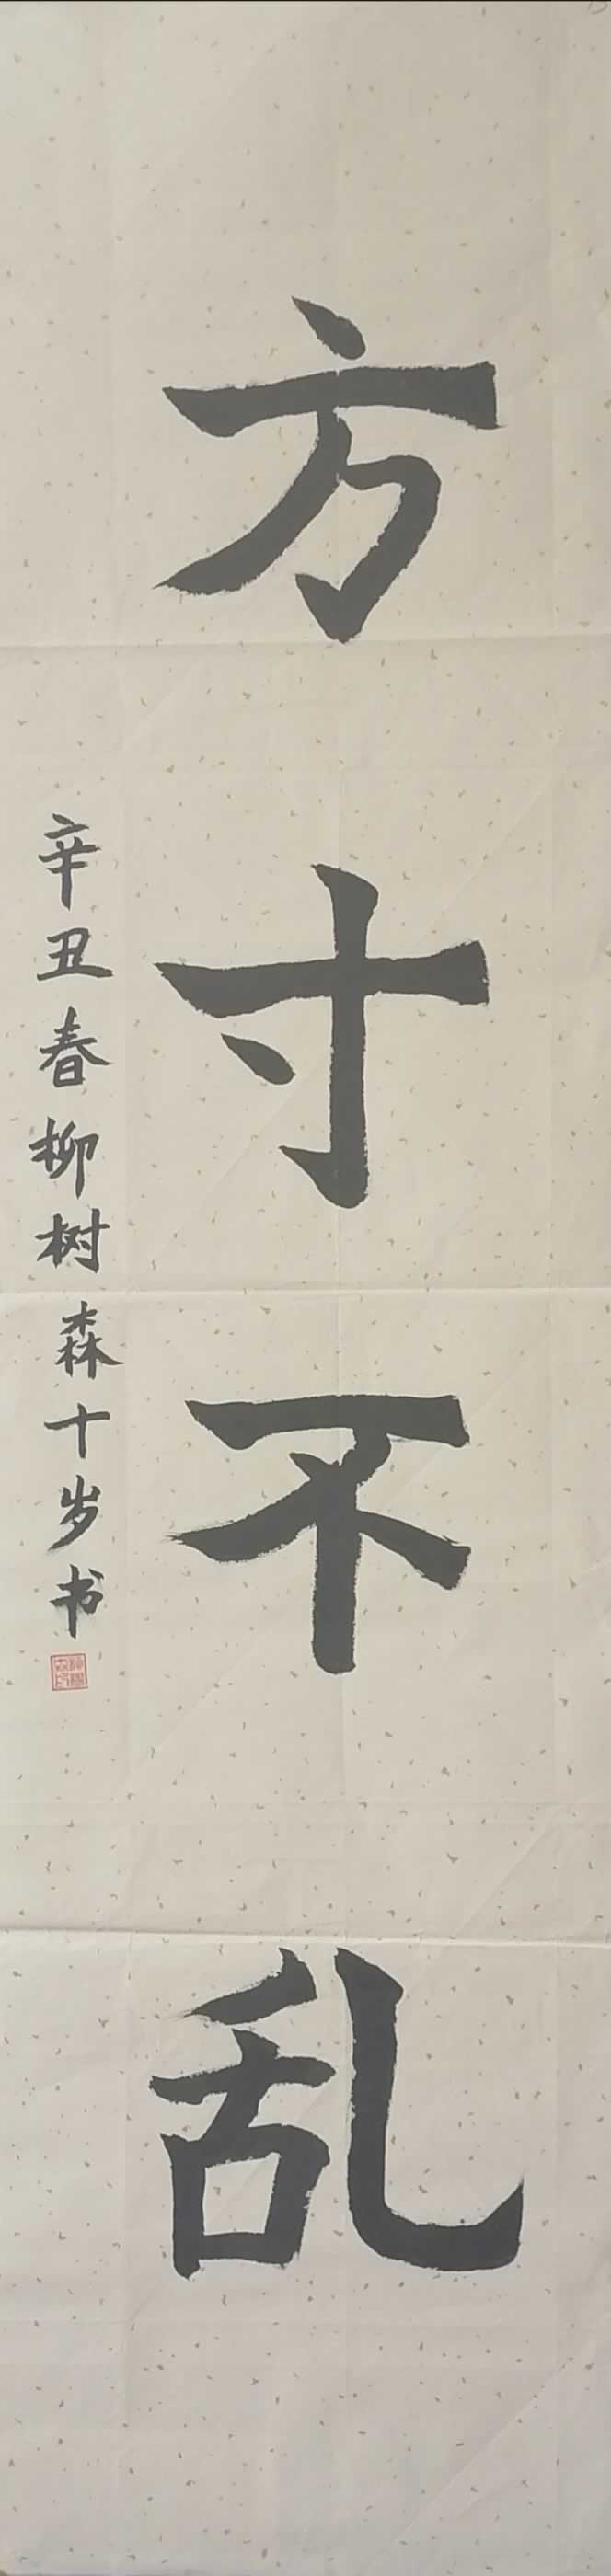 方寸不乱
辛丑春柳树森十岁书